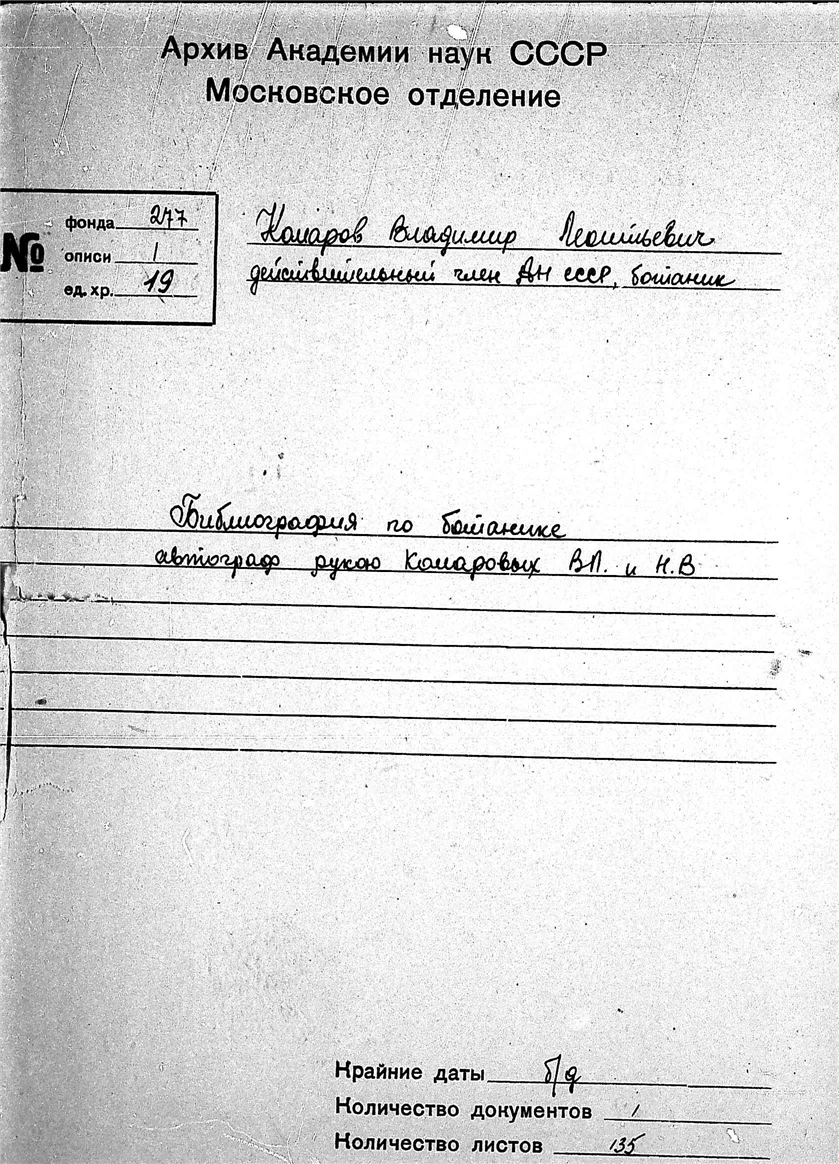 Архив Академии наук СССР
Московское отделение
№
фонда 277
описи 1
ед. хр. 19
Комаров Владимир Леонтьевич
действительный член АН СССР, ботаник
Библиография по ботанике
автограф рукою Комаровых В.Л. и Н.В
Крайние даты б/д
Количество документов 1
Количество листов 135